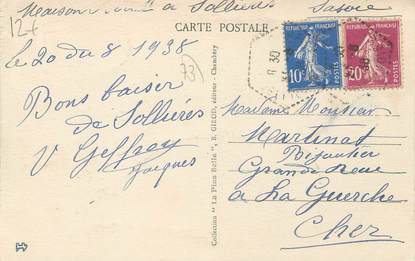 Maison à Sollières Savoie
12+
CARTE POSTALE
le 20 du 8 1938
73
Bons baiser
de Sollières
V Geffroy
Jacques
Collection "La Plus Belle", E. GIROD, éditeur - Chambéry
REPUBLIQUE FRANÇAISE
10c
POSTES
REPUBLIQUE FRANÇAISE
20c
POSTES
30
Madame Monsieur
Martinat
Bijoutier
Grande Rue
à La Guerche
Cher